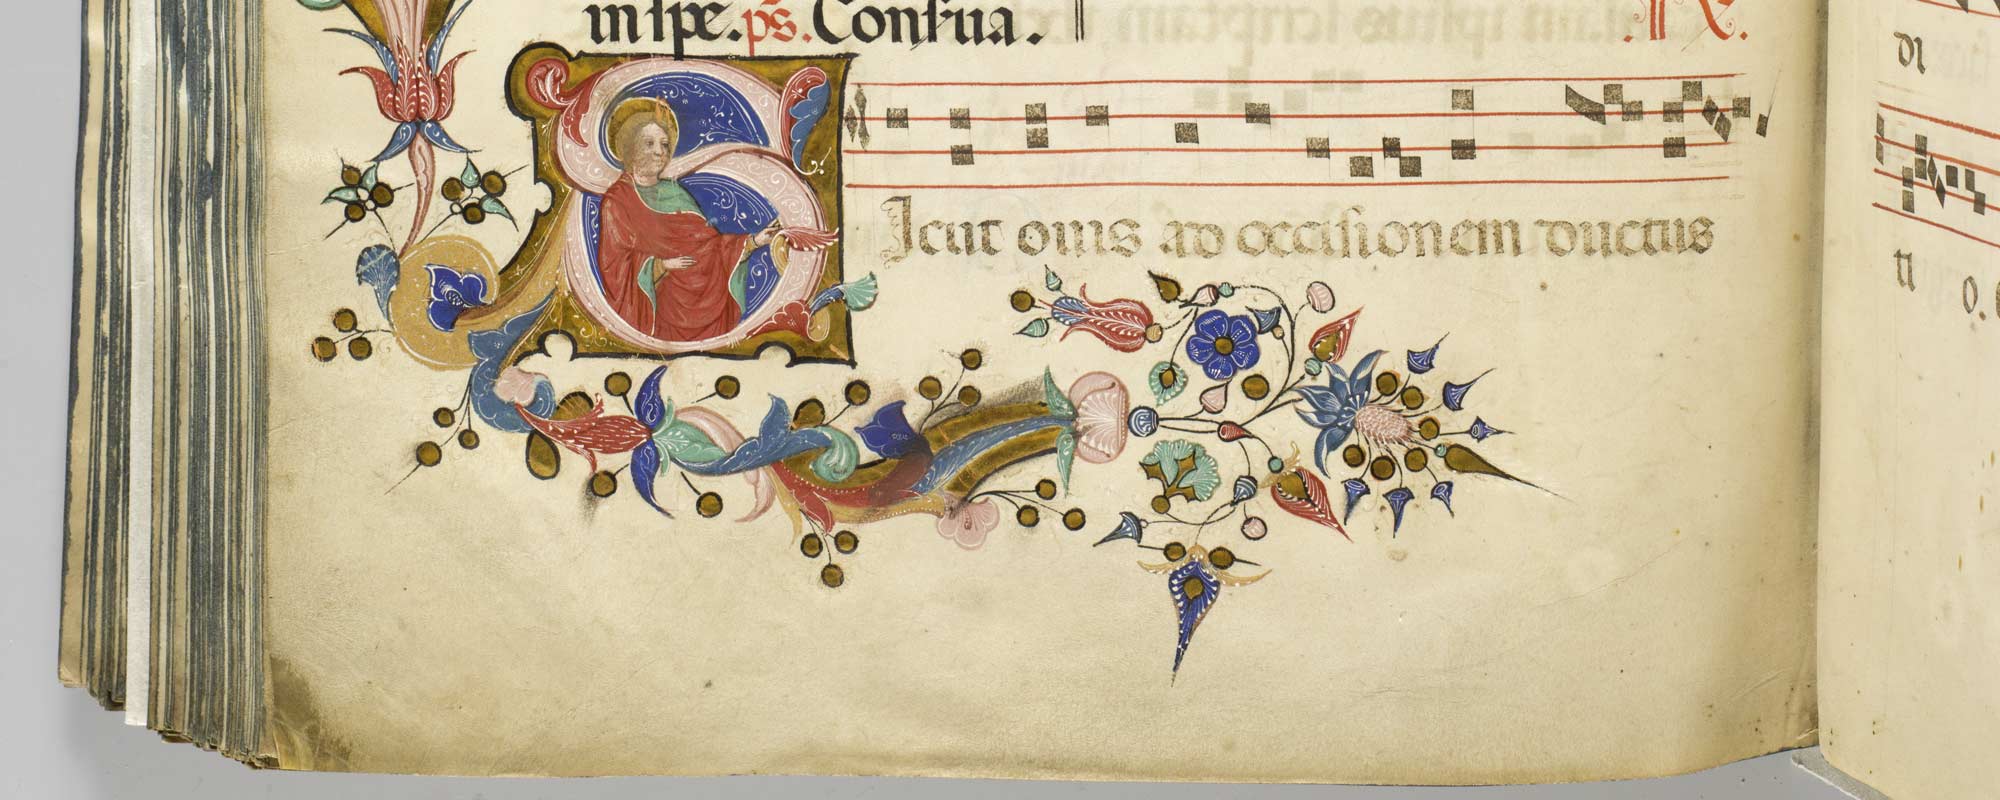 in spe. ps. Conserua. R.
SIcut ouis ad occisionem ductus
di
ti
o.